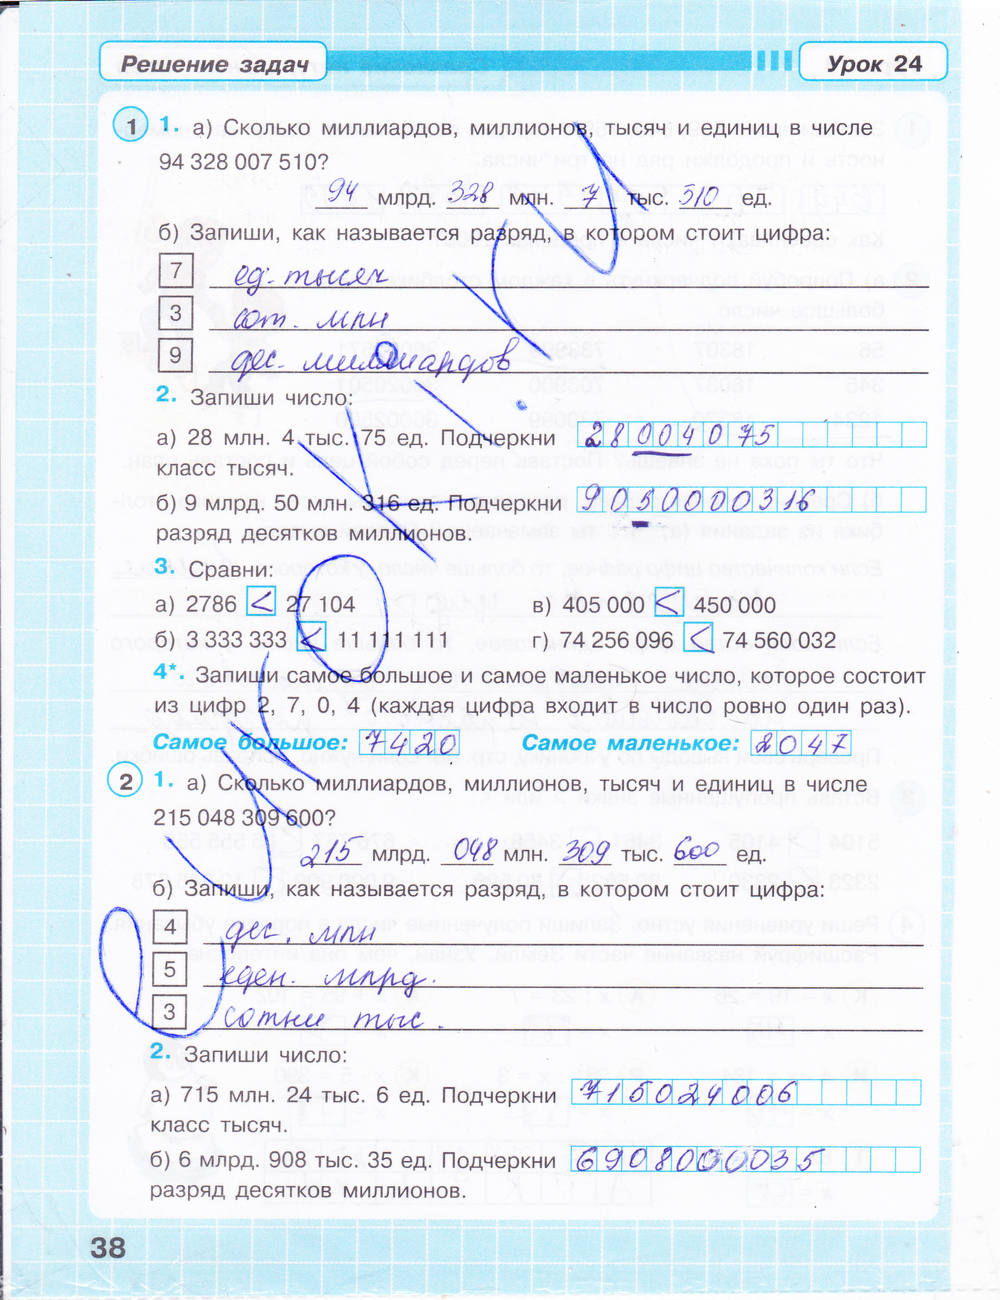 Решение задач
Урок 24
1 1. а) Сколько миллиардов, миллионов, тысяч и единиц в числе
94 328 007 510?
94 млрд. 328 млн. 7 тыс. 510 ед.
б) Запиши, как называется разряд, в котором стоит цифра:
7 ед. тысяч
3 сот. млн
9 дес. миллиардов
2. Запиши число:
а) 28 млн. 4 тыс. 75 ед. Подчеркни 28004075
класс тысяч.
б) 9 млрд. 50 млн. 316 ед. Подчеркни 9050000316
разряд десятков миллионов.
3. Сравни:
а) 2786 < 27 104 в) 405 000 < 450 000
б) 3 333 333 < 11 111 111 г) 74 256 096 < 74 560 032
4*. Запиши самое большое и самое маленькое число, которое состоит
из цифр 2, 7, 0, 4 (каждая цифра входит в число ровно один раз).
Самое большое: 7420 Самое маленькое: 2047
2 1. а) Сколько миллиардов, миллионов, тысяч и единиц в числе
215 048 309 600?
215 млрд. 048 млн. 309 тыс. 600 ед.
б) Запиши, как называется разряд, в котором стоит цифра:
4 дес. млн
5 еден. млрд.
3 сотни тыс.
2. Запиши число:
а) 715 млн. 24 тыс. 6 ед. Подчеркни 715024006
класс тысяч.
б) 6 млрд. 908 тыс. 35 ед. Подчеркни 6908000035
разряд десятков миллионов.
38